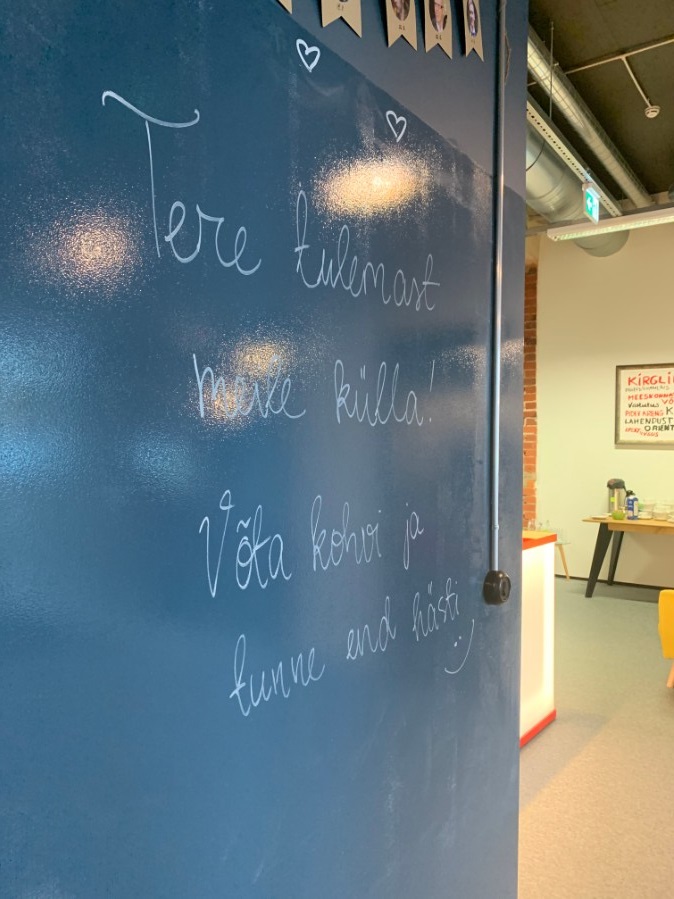 Tere tulemast
meile külla!
Võta kohvi ja
tunne end hästi
KIRGLI
MEESKONN
LAHENDUST